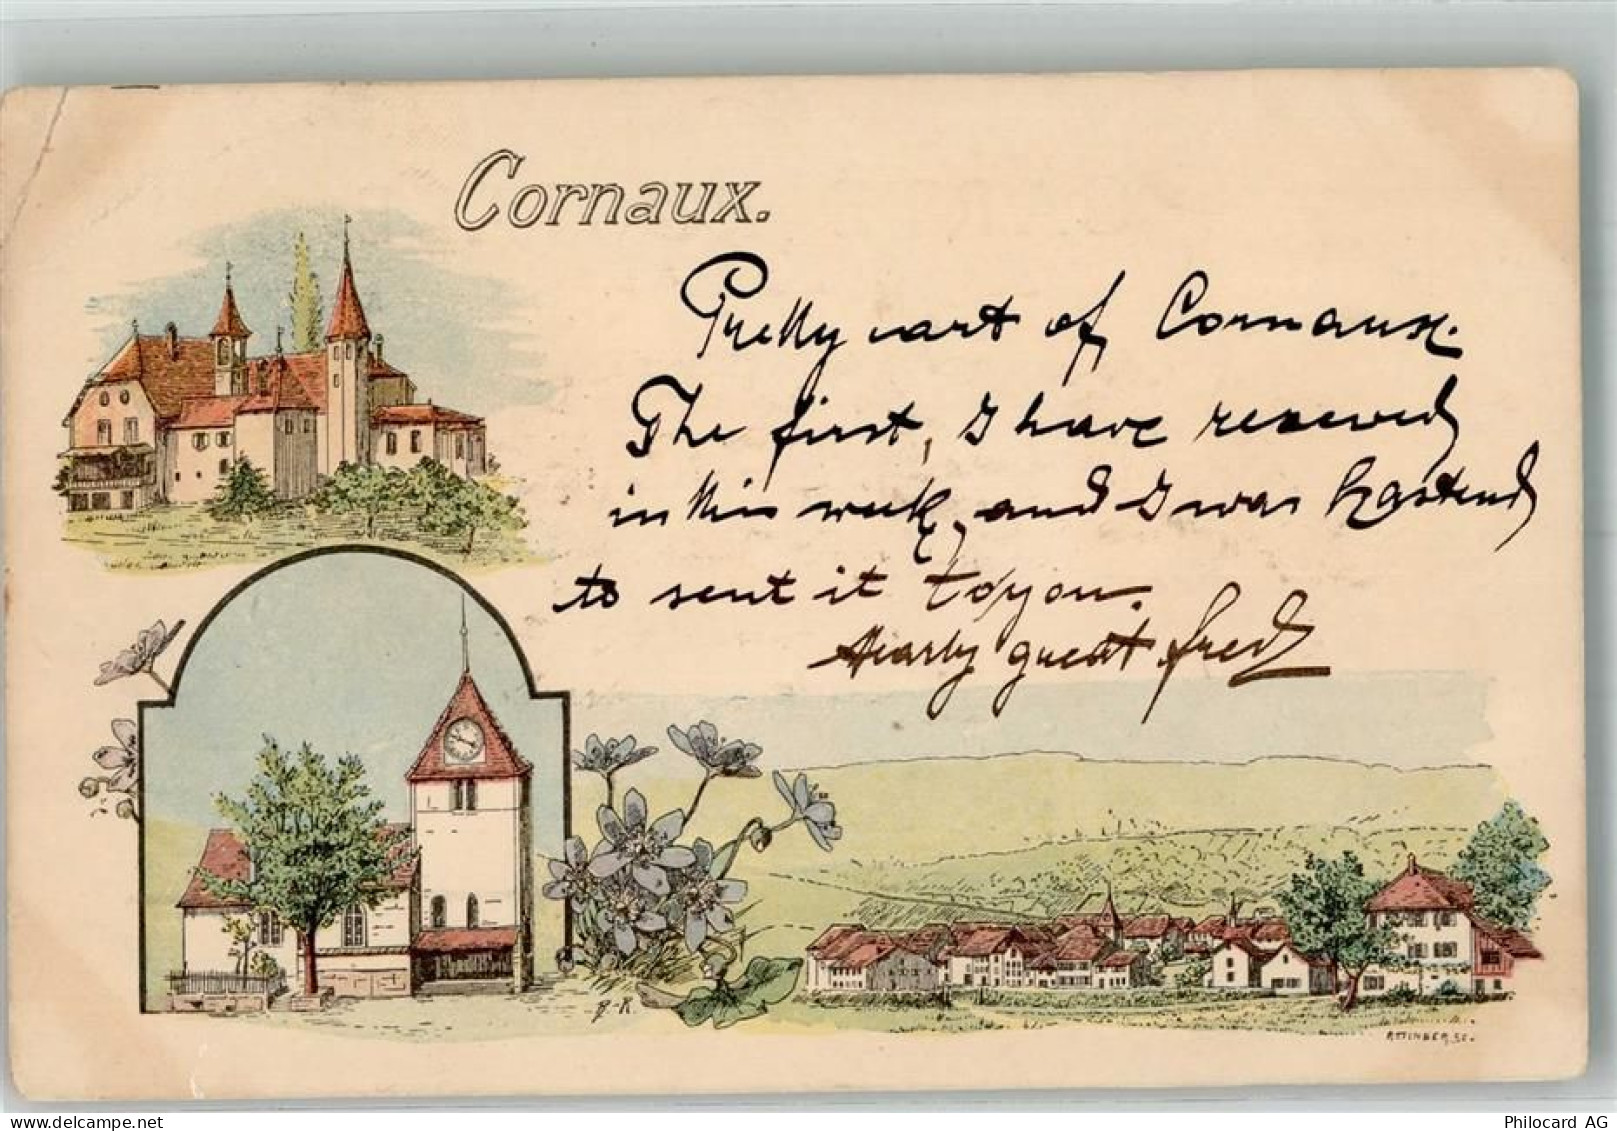 Cornaux.
Pretty cart of Cornaux.
The first, I have received
in this week, and I was hastend
to sent it to you.
Hearly greeat fred
A-K.
ATTINGER, SC.
Philocard AG